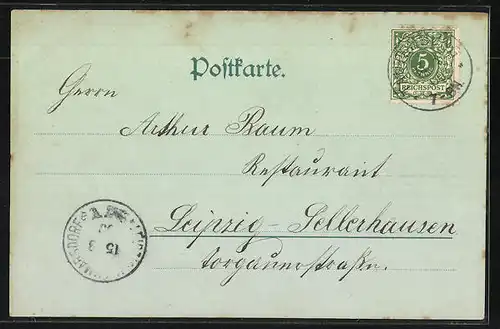 Postkarte.
5
REICHSPOST
Herrn
Arthur Baum
Restaurant
Leipzig-Sellerhausen
Torgauerstraße.
15
3